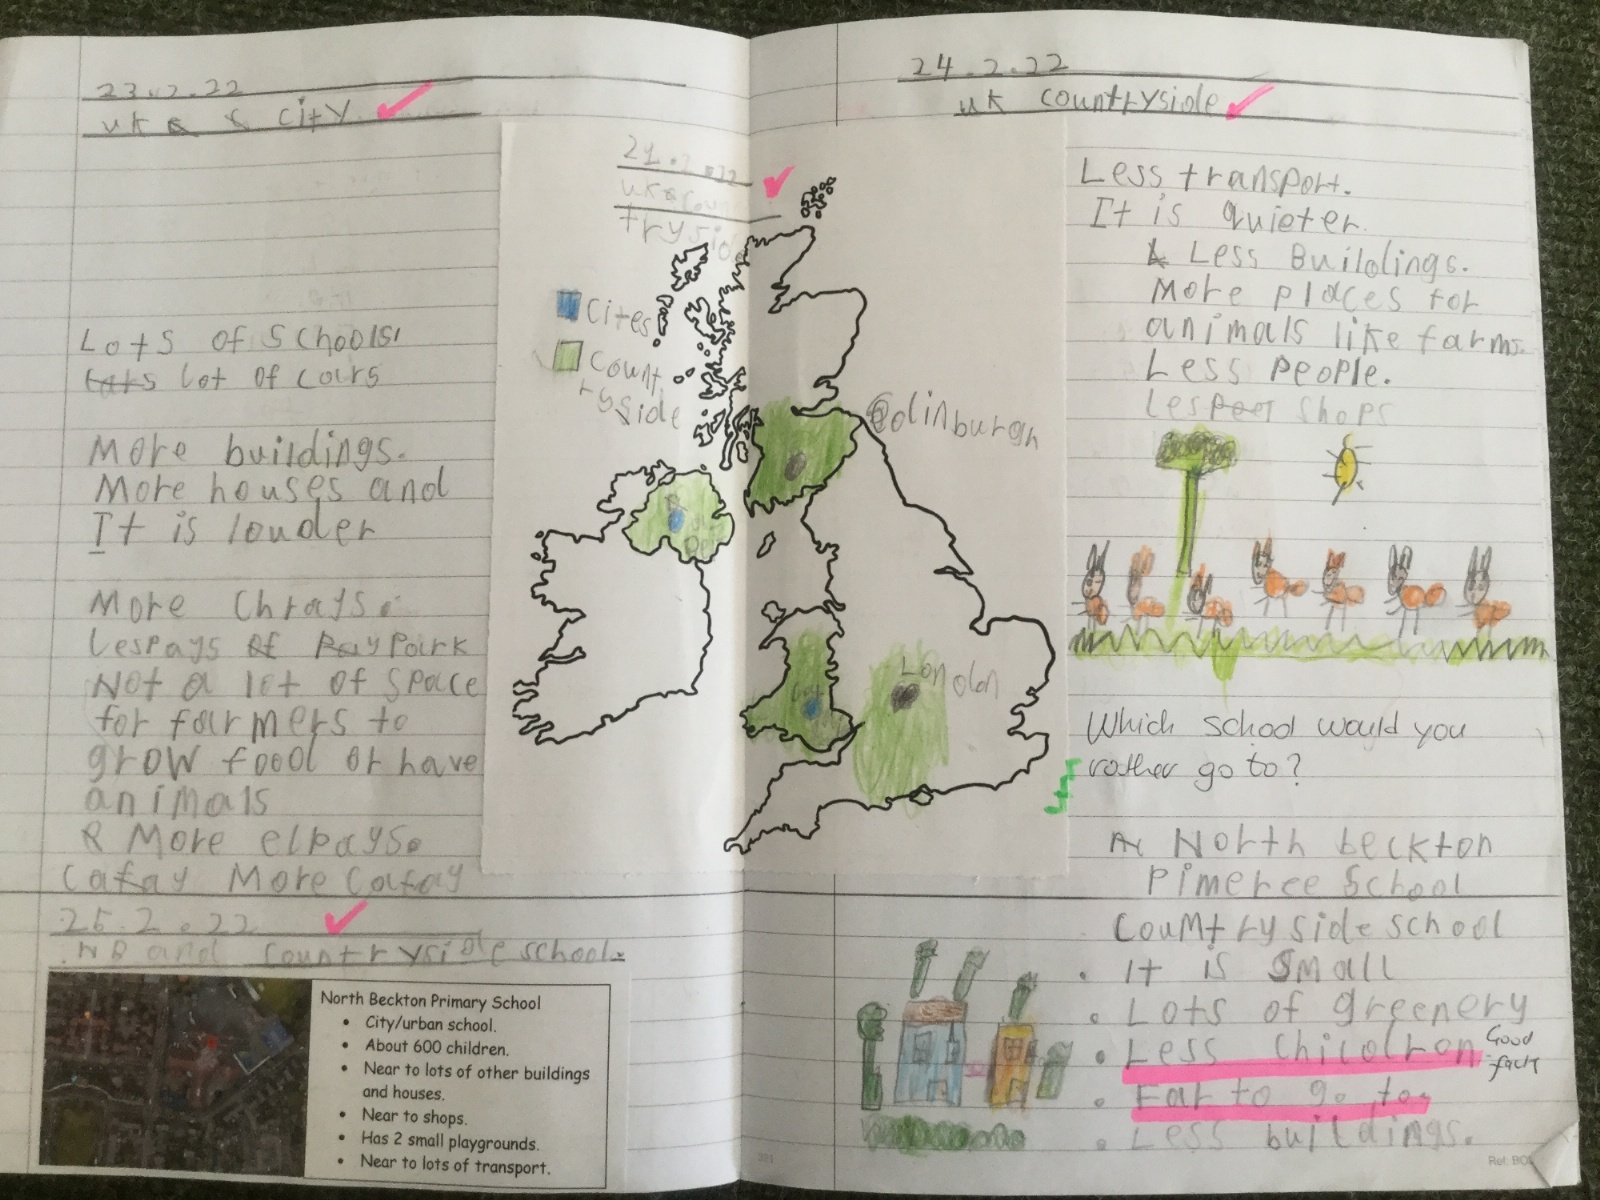 23.2.22
uk & city
Lots of schools!
lot of cars
More buildings.
More houses and
It is louder
More Chrays.
Lespays of Paypark
Not a lot of space
for farmers to
grow food or have
animals
R More elpays.
Cafay More Cafay
25.2.22
NB and countryside school.
North Beckton Primary School
• City/urban school.
• About 600 children.
• Near to lots of other buildings
and houses.
• Near to shops.
• Has 2 small playgrounds.
• Near to lots of transport.
21.2.22
uk & coun
tryside
Cites
Count
ryside
Edinburgh
London
24.2.22
uk countryside
Less transport.
It is quieter.
Less Buildings.
More places for
animals like farms.
Less people.
Les shops
Which school would you
rather go to?
North beckton
Pimerce School
Coumtryside school
• It is small
• Lots of greenery
• Less Chicolren
Good
fact
• Far to go to.
• Less buildings.